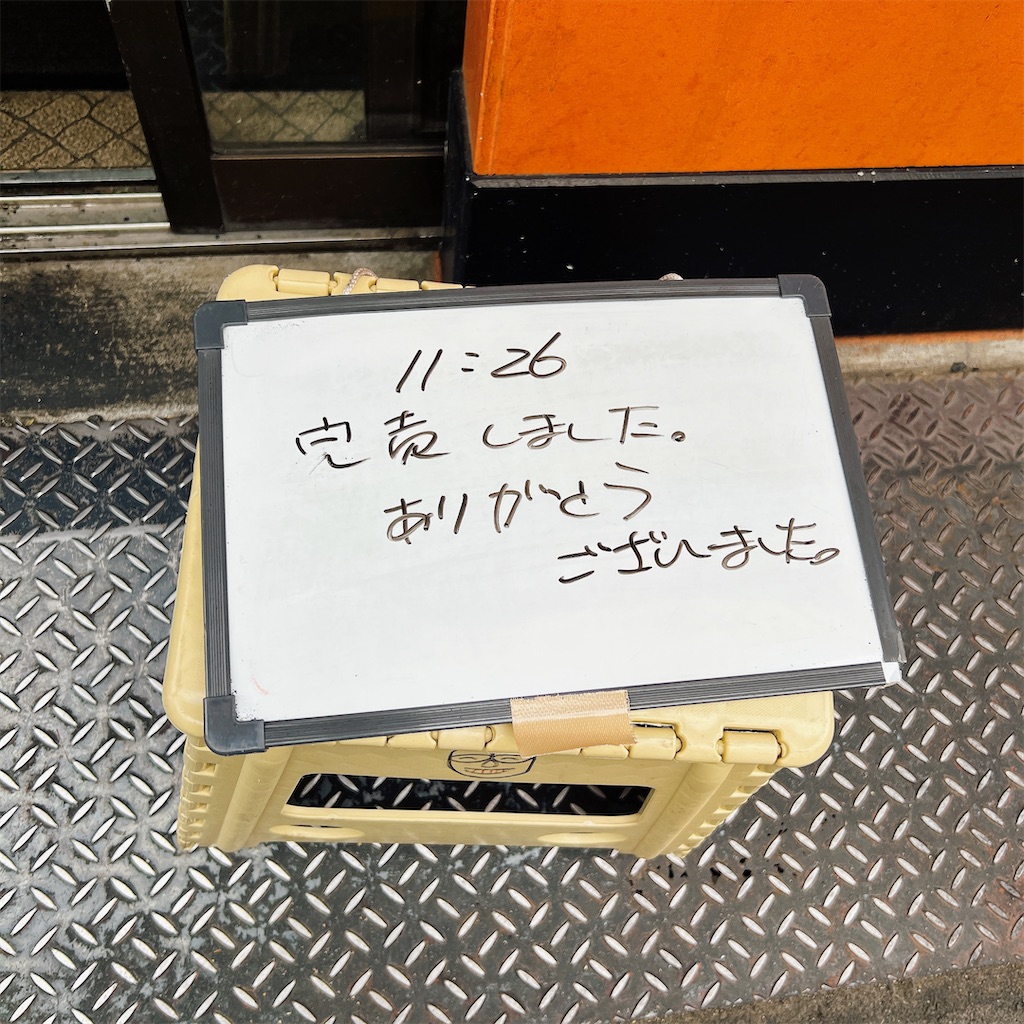 11:26
完売しました。
ありがとう
ございました。